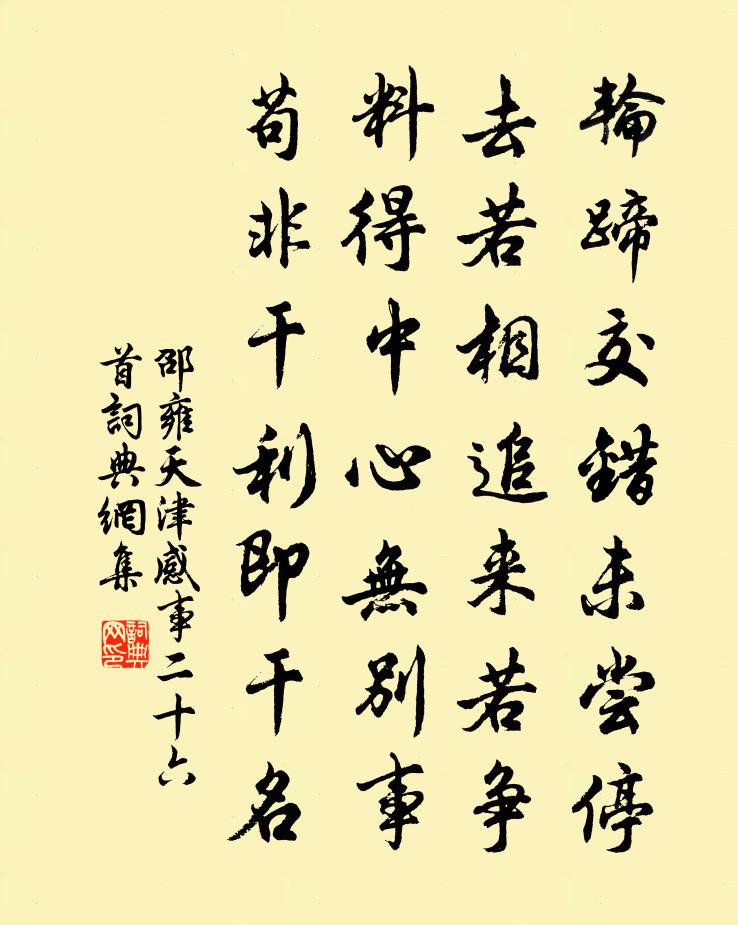 輪蹄交錯未尝停
去若相追来若争
料得中心無別事
苟非干利即干名
邵雍天津感事二十六
首詞典網集
詞典网印